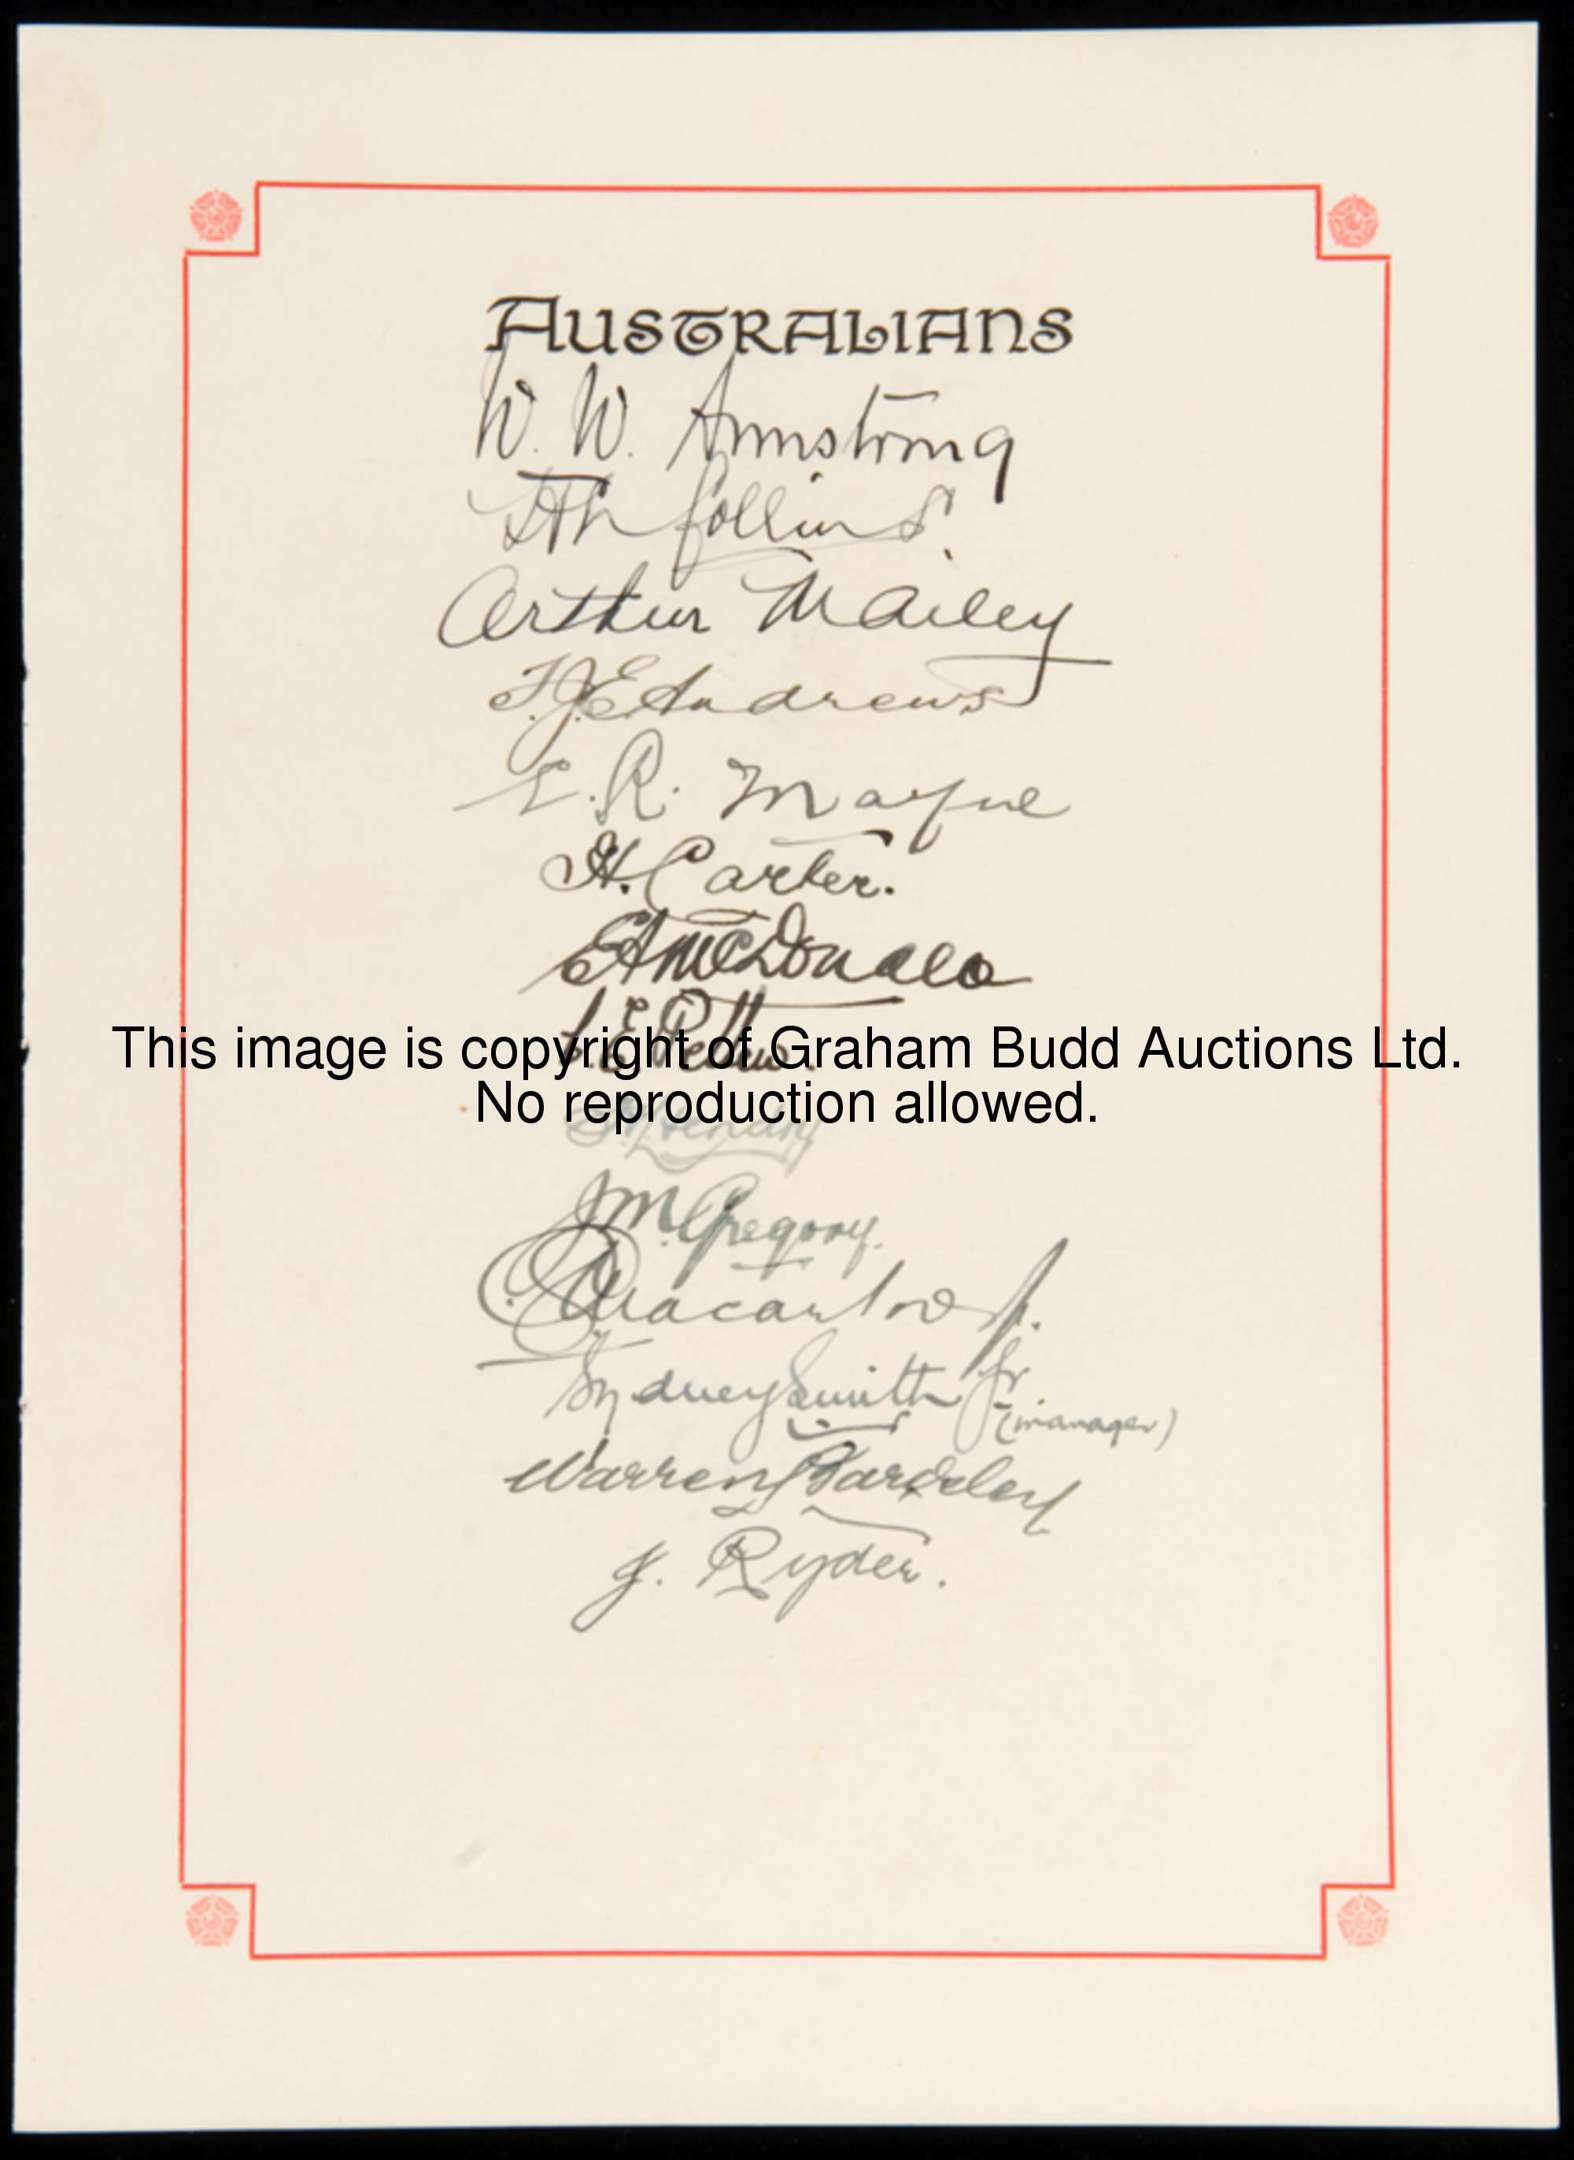 AUSTRALIANS
W. W. Armstrong
H L Collins.
Arthur Mailey
T.J.E Andrews
E. R. Mayne
H. Carter.
EA McDonald
C.E. Pellew.
This image is copyright of Graham Budd Auctions Ltd.
No reproduction allowed.
Hendry
J M. Gregory.
C. G. Macartney.
Sydney Smith Jr
(manager)
Warren Bardsley
J. Ryder.